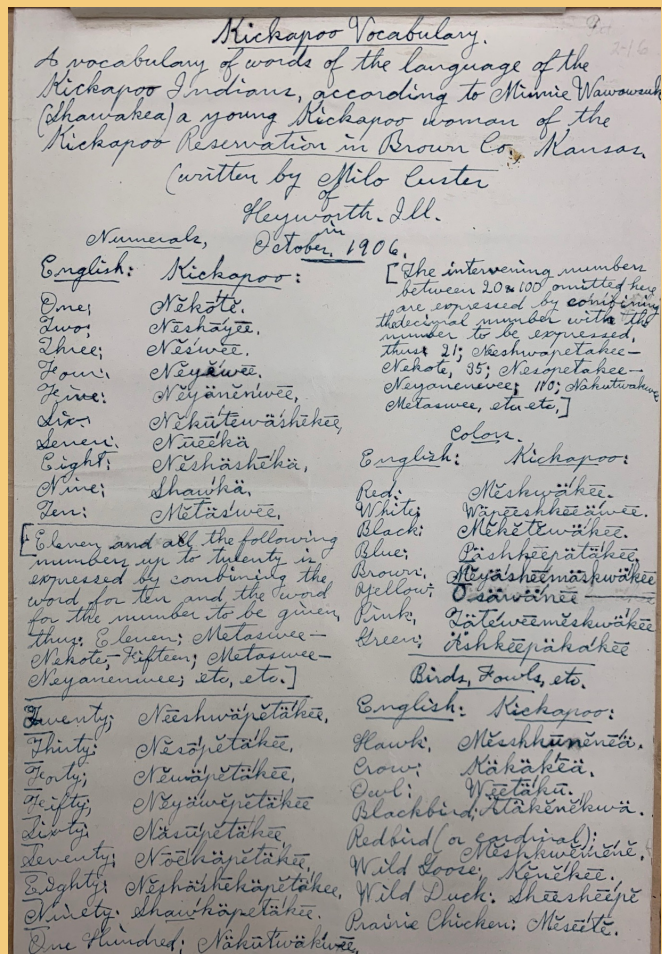 Kickapoo Vocabulary.
2-16
A vocabulary of words of the language of the
Kickapoo Indians, according to Minnie Wawowsuk
(Shawakea) a young Kickapoo woman of the
Kickapoo Reservation in Brown Co., Kansas,
(written by Milo Custer
of
Heyworth. Ill.
in
October, 1906.
Numerals,
English: Kickapoo:
One; Nĕkōtĕ.
Two; Nēshäyēē.
Three; Nĕswēē.
Four; Nĕyäwēē.
Five; Nĕyänĕnwēē,
Six; Nĕkūtĕwäshĕkēē,
Seven; Nūēēkä
Eight; Nĕshäshĕkä,
Nine; Shawkä,
Ten; Mĕtäswēē.
[Eleven and all the following
numbers up to twenty is
expressed by combining the
word for ten and the word
for the number to be given
thus: Eleven; Metaswee—
Nekote,- Fifteen; Metaswee—
Neyanenwee; etc, etc.]
Twenty; Nēēshwäpĕtäkēē,
Thirty; Nĕsōpĕtäkēē,
Forty; Nĕwäpĕtäkēē,
Fifty; Nĕyäwĕpĕtäkēē
Sixty; Näsūpĕtäkēē
Seventy; Nōēkäpĕtäkēē,
Eighty; Nĕshäshĕkäpĕtäkēē,
Ninety; Shawkäpĕtäkēē.
One Hundred; Näkūtwäkwēē,
[The intervening numbers
between 20 & 100 omitted here
are expressed by combining
the decimal number with the
number to be expressed,
thus 21; Neeshwapetakee—
Nekote, 35; Nesopetakee—
Neyanenevee; 110; Nakutwakwee
Metaswee, etc etc,]
Colors.
English: Kickapoo:
Red; Mĕskwäkēē.
White; Wäpēēshkēēäwēē.
Black; Mĕkĕtĕwäkēē.
Blue; Päshkēēpätäkēē,
Brown, Mĕyäshēēmäskwäkēē
Yellow, Ōsäwänēē
Pink, Zätĕwēēmĕskwäkēē
Green; Äshkēēpäkäkēē
Birds, Fowls, etc.
English: Kickapoo:
Hawk, Mĕshkunĕnēä.
Crow; Käkäkēä.
Owl: Wēētäkū.
Blackbird; Ätäkĕnĕkwä.
Redbird (or cardinal);
Mĕshkwĕmĕnĕ.
Wild Goose, Kĕnĕkēē.
Wild Duck: Shēēshēēpĕ
Prairie Chicken; Mĕsēētĕ.